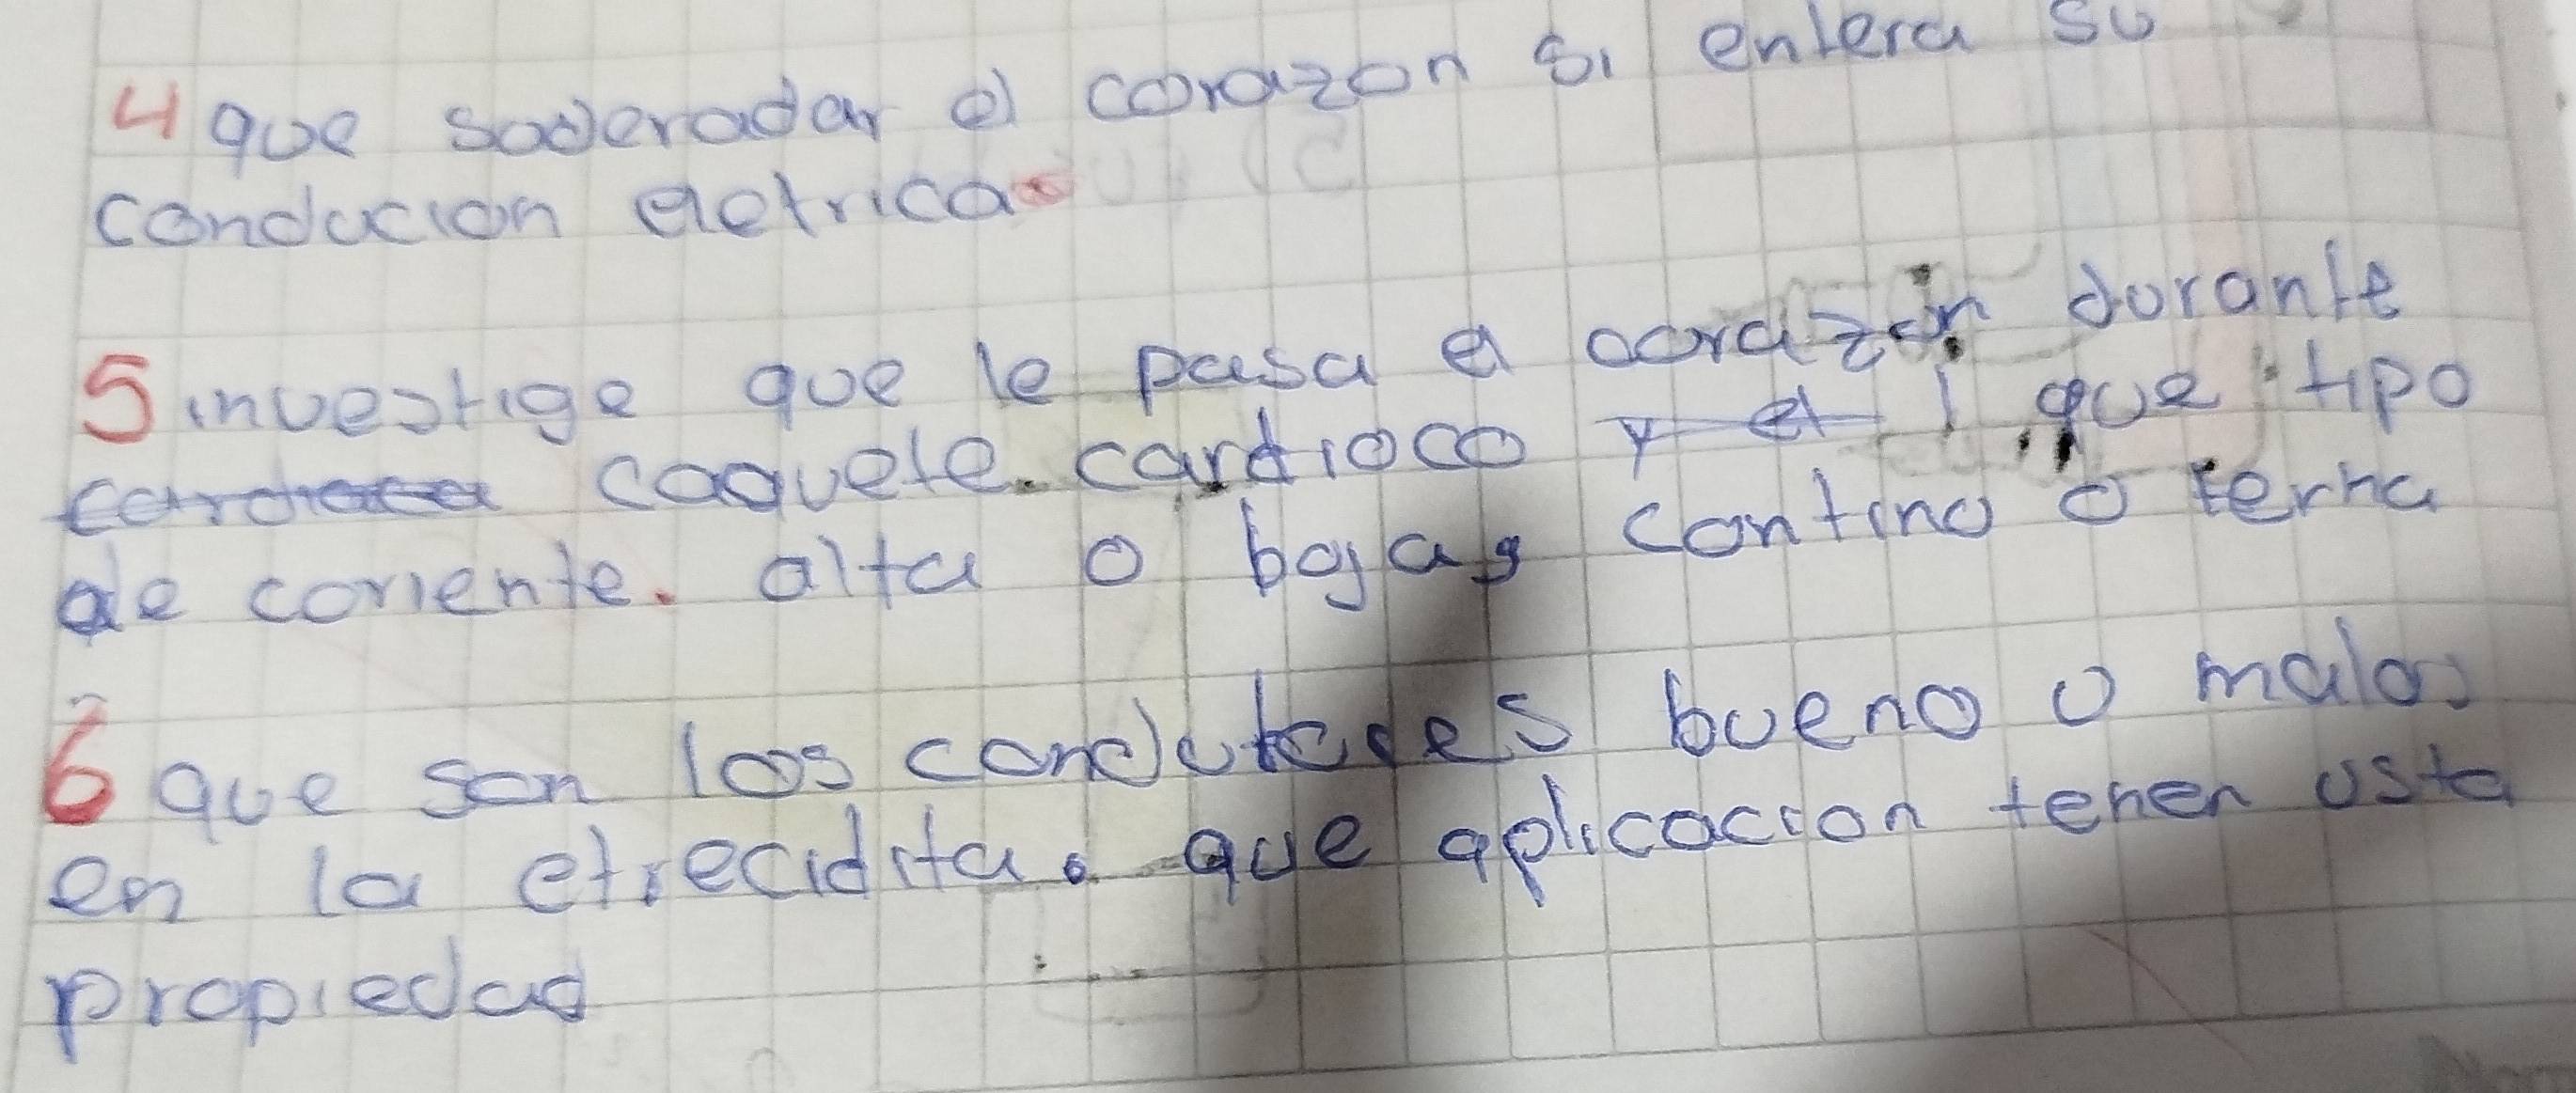 4 que soderadar el corazon si entera su
conducion eletrica
5 investige que le pasa el corazon durante
coquete. cardioco y el que tipo
de coriente. alta o bajas contino o terna
6 que son los condutores bueno o malos
en la etrecidita. que aplicacion tenen usta
propiedad